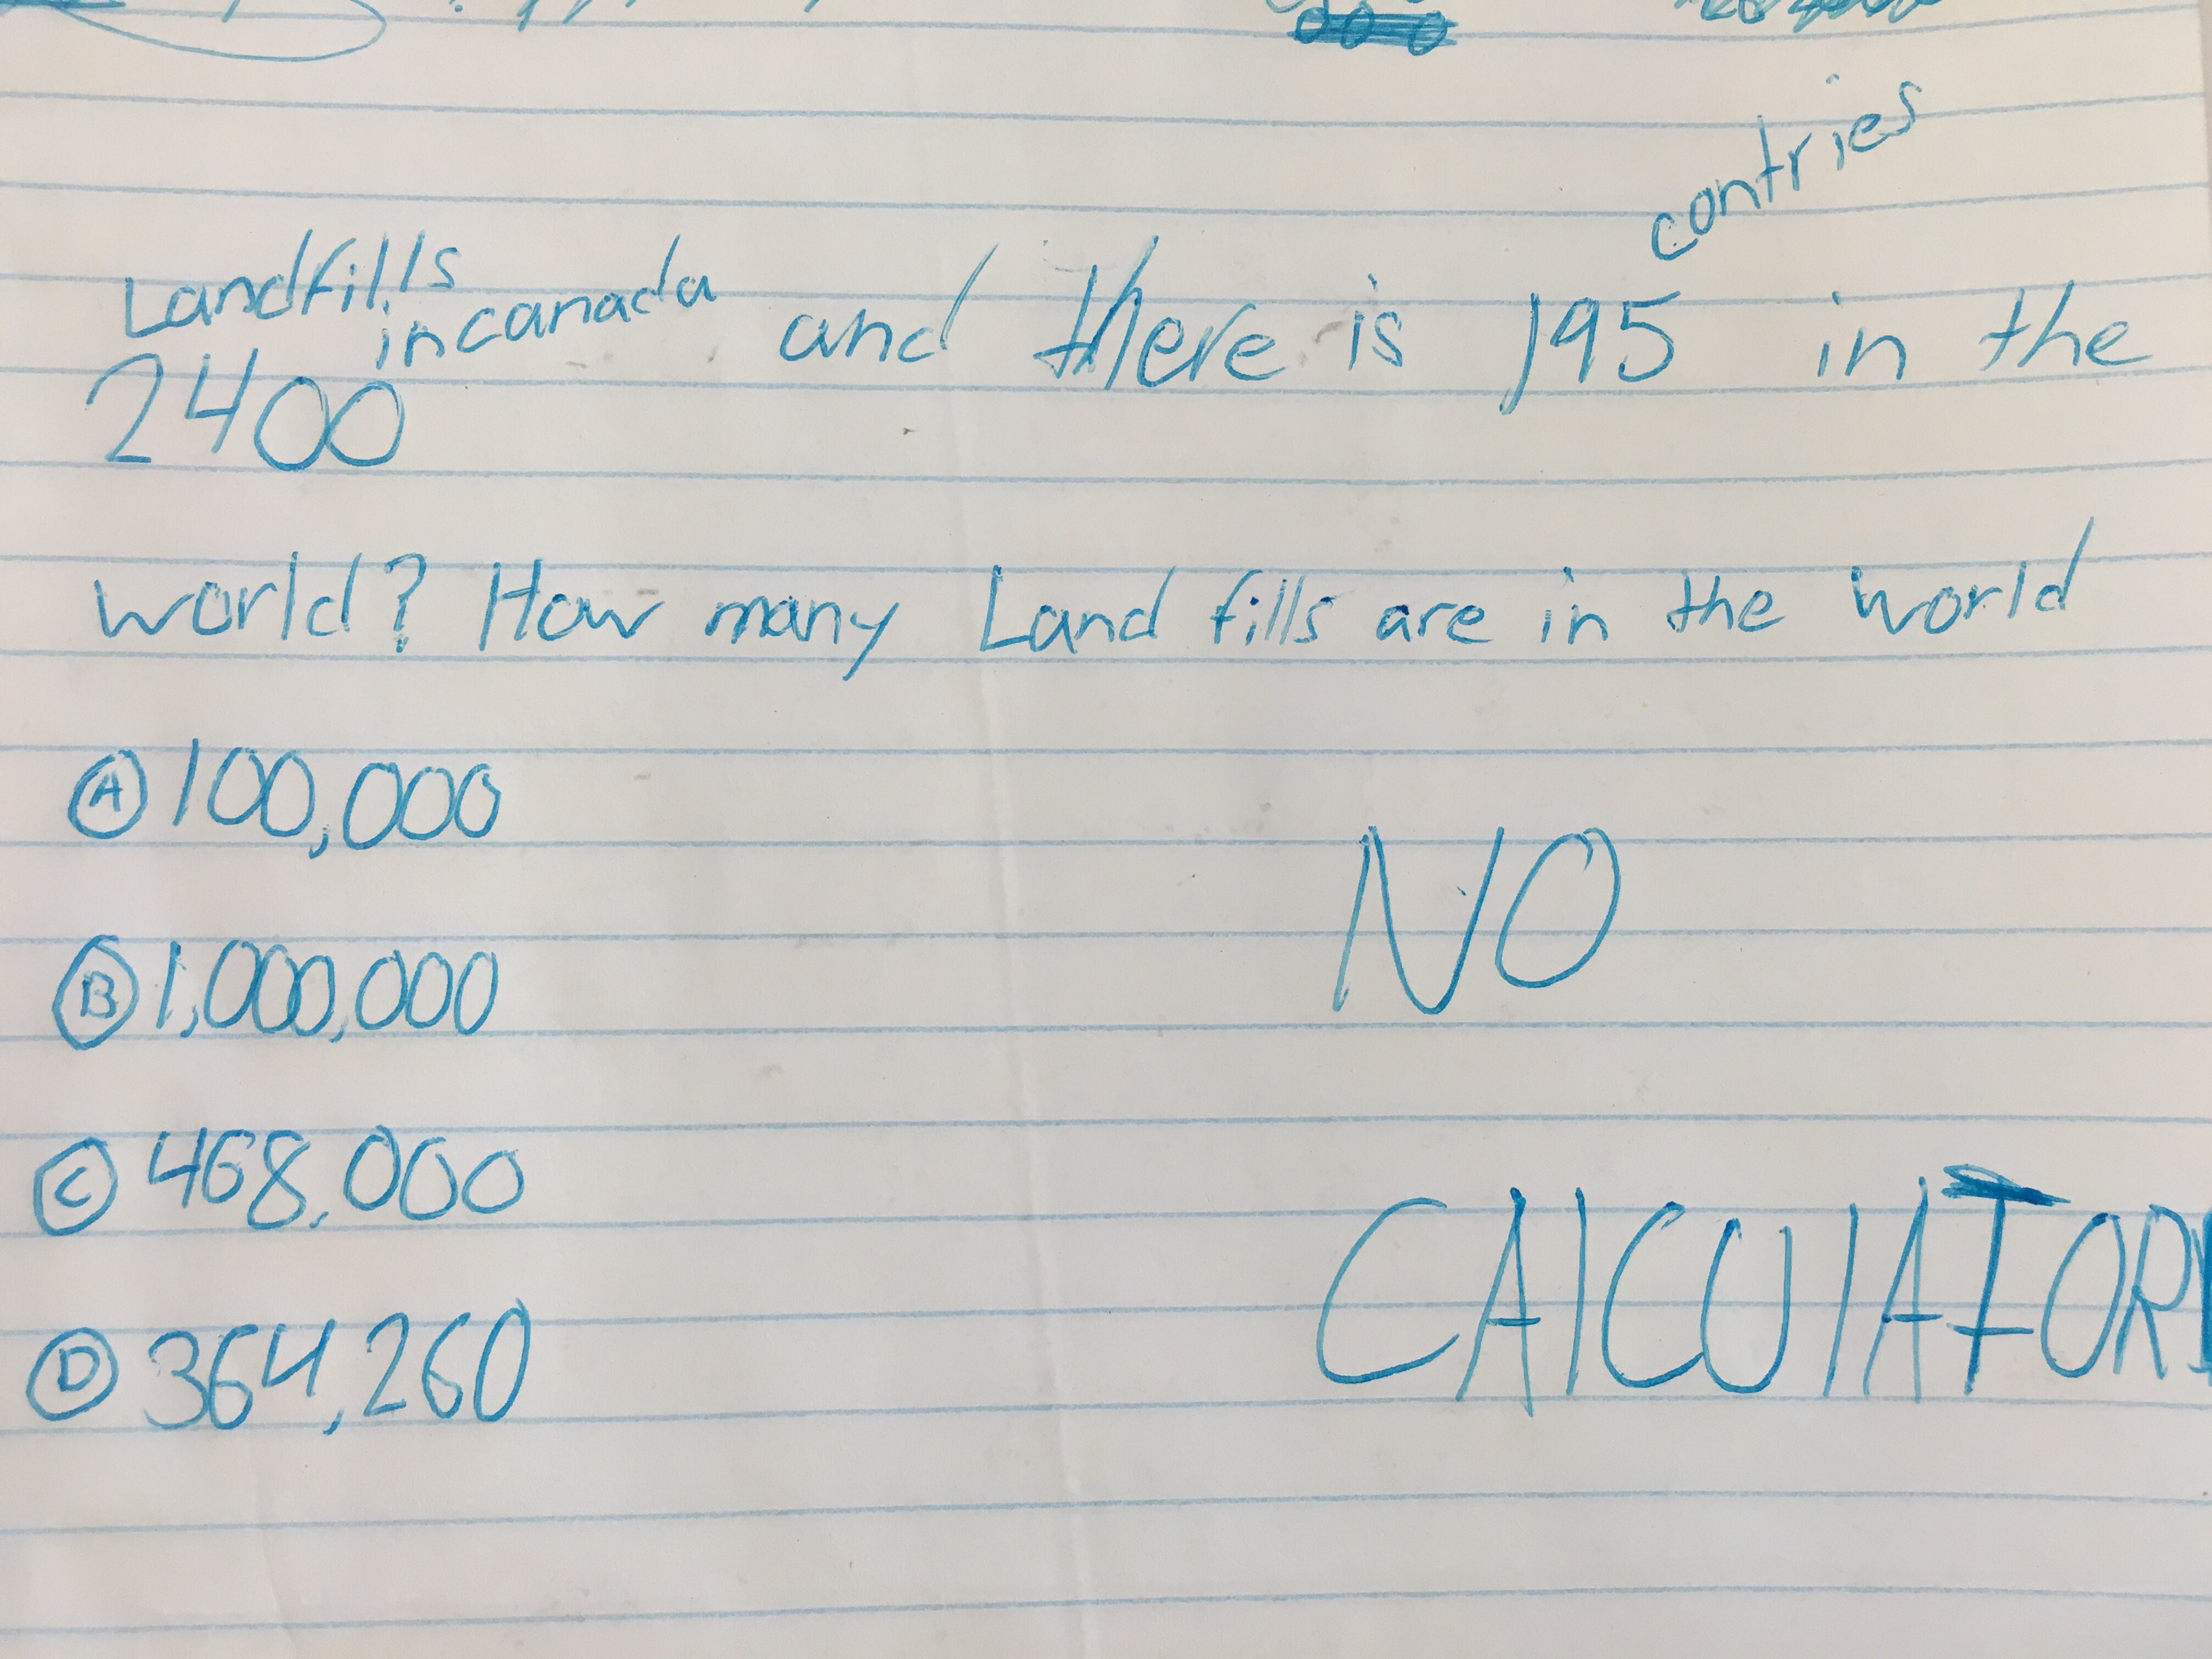 contries
Landfills
in canada and there is 195 in the
2400
world? How many Land fills are in the world
A 100,000
B 1,000,000
C 468,000
D 364,260
NO
CAlCUlATOR